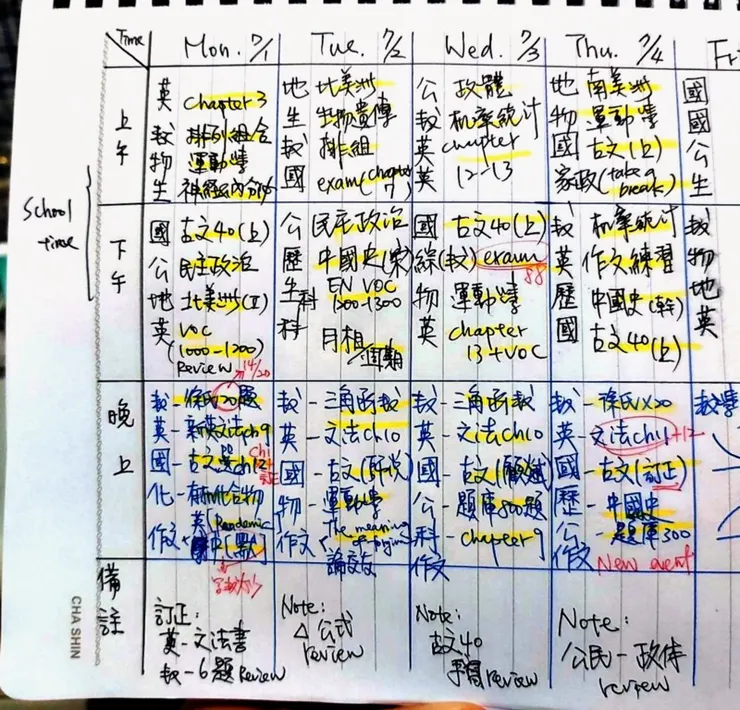 Time Mon. 7/1 Tue. 7/2 Wed. 7/3 Thu. 7/4 Fri
School time
上午
英 chapter 3
數 排列組合
物 運動學
生 神經內分泌
地 北美洲
生 生物遺傳
數 排組
國 exam (chapter 7)
公 政體
數 机率統計
英 chapter
英 12-13
地 南美洲
物 運動學
國 古文(上)
家政 (take a break)
國
國
公
生
下午
國 古文40(上)
公 民主政治
地 北美洲(II)
英 VOC
(1000-1200)
Review 14/20
公 民主政治
歷 中國史(宋)
生科 EN VOC
1200-1300
月相
週期
國 古文40(上)
綜(數) exam
88
物 運動學
英 chapter
13+VOC
數 机率統計
英 作文練習
歷 中國史
國 古文40(上)
數
物
地
英
晚上
數-徐氏20題
英-新英文法ch9
國-古文 ch12
化-有机化合物
作文
英(Pandemic
數-三角函數
英-文法ch10
國-古文(師說)
物-運動學
作文 The meaning of
論說文
數-三角函數
英-文法ch10
國-古文
公-題庫800題
科-chapter 9
作文
數-徐氏X20
英-文法ch11+12
國-古文(訂正)
歷-中國史
公-題庫300
作文 New event
數學
備註
訂正:
英-文法書
數-6題 Review
Note:
△公式
review
Note:
古文40
review
Note:
公民-政体
review
CHA SHIN